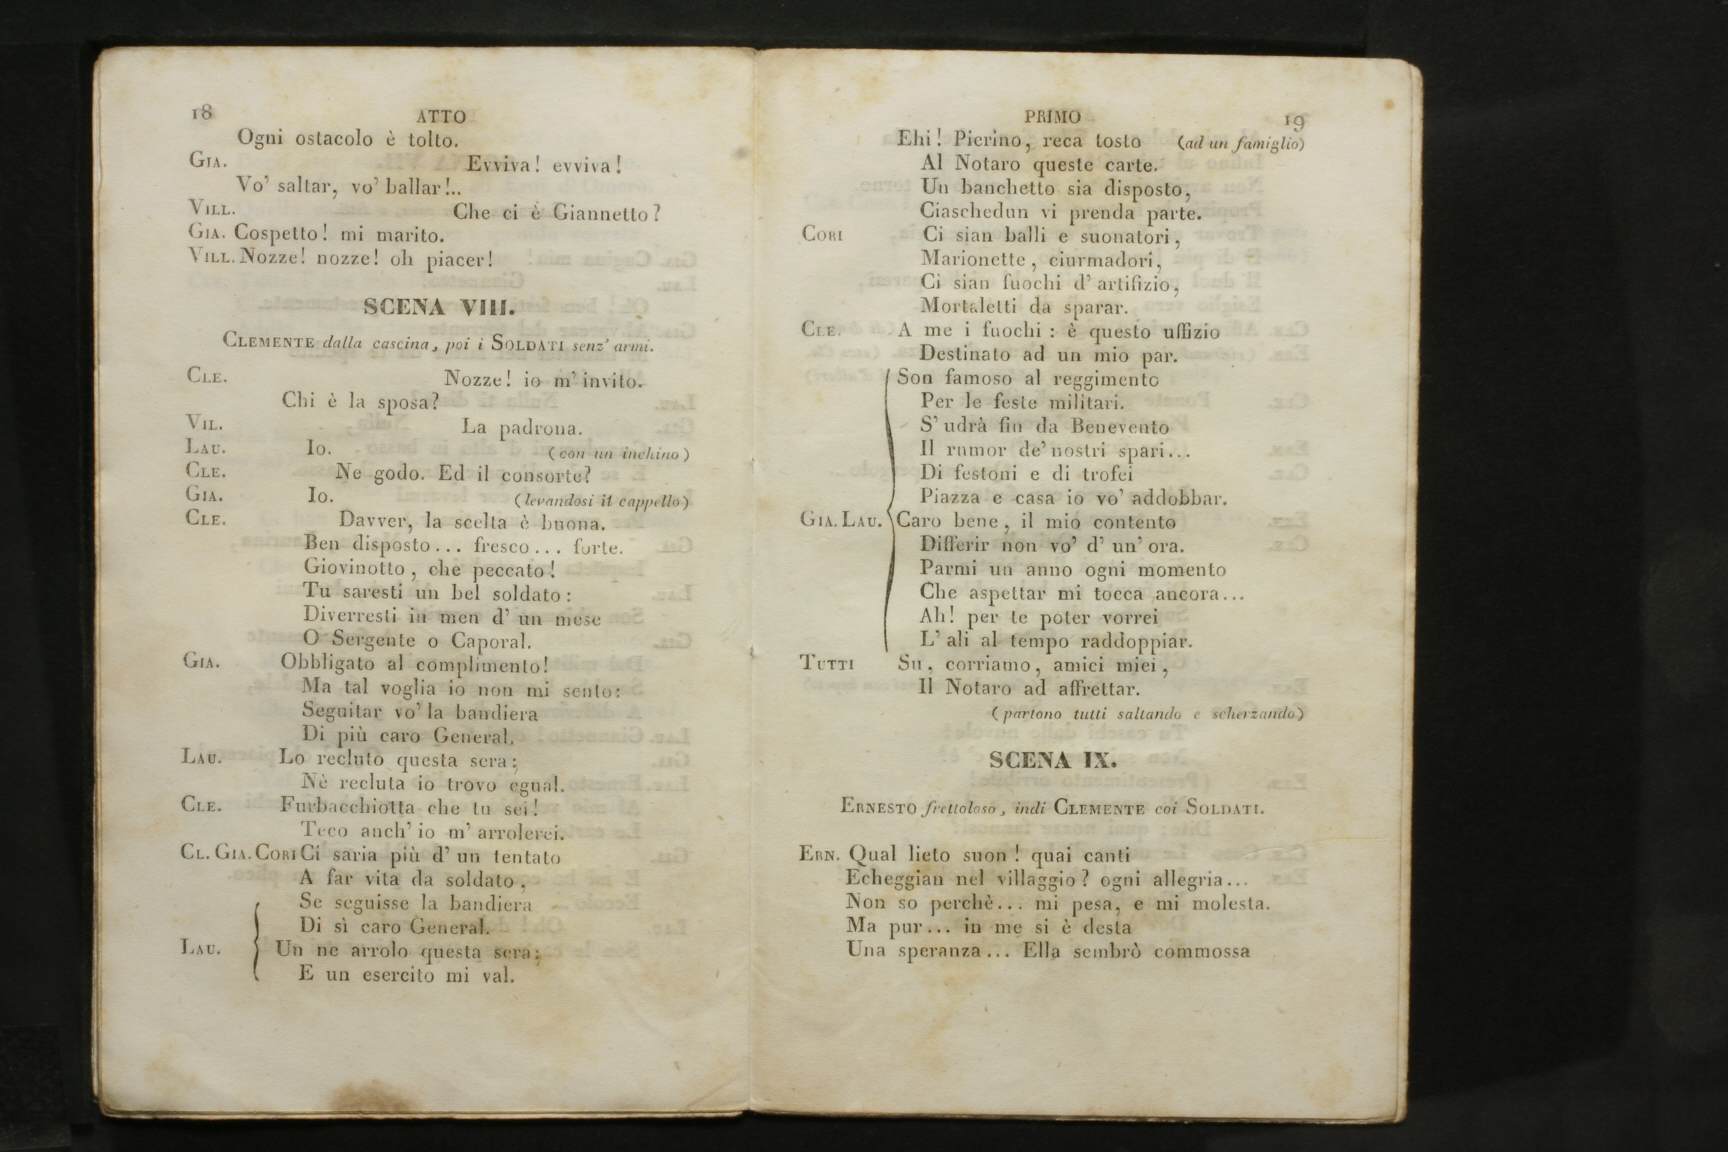 18
ATTO
Ogni ostacolo è tolto.
GIA. Evviva! evviva!
Vo' saltar, vo' ballar!..
VILL. Che ci è Giannetto?
GIA. Cospetto! mi marito.
VILL. Nozze! nozze! oh piacer!
SCENA VIII.
CLEMENTE dalla cascina, poi i SOLDATI senz' armi.
CLE. Nozze! io m' invito.
Chi è la sposa?
VIL. La padrona.
LAU. Io. (con un inchino)
CLE. Ne godo. Ed il consorte?
GIA. Io. (levandosi il cappello)
CLE. Davver, la scelta è buona.
Ben disposto... fresco... forte.
Giovinotto, che peccato!
Tu saresti un bel soldato:
Diverresti in men d' un mese
O Sergente o Caporal.
GIA. Obbligato al complimento!
Ma tal voglia io non mi sento:
Seguitar vo' la bandiera
Di più caro General.
LAU. Lo recluto questa sera;
Nè recluta io trovo egual.
CLE. Furbacchiotta che tu sei!
Teco anch' io m' arrolerei.
CL. GIA. CORI Ci saria più d' un tentato
A far vita da soldato,
Se seguisse la bandiera
Di sì caro General.
LAU. Un ne arrolo questa sera;
E un esercito mi val.
PRIMO
19
Ehi! Pierino, reca tosto (ad un famiglio)
Al Notaro queste carte.
Un banchetto sia disposto,
Ciaschedun vi prenda parte.
CORI Ci sian balli e suonatori,
Marionette, ciurmadori,
Ci sian fuochi d' artifizio,
Mortaletti da sparar.
CLE. A me i fuochi: è questo uffizio
Destinato ad un mio par.
Son famoso al reggimento
Per le feste militari.
S' udrà fin da Benevento
Il rumor de' nostri spari...
Di festoni e di trofei
Piazza e casa io vo' addobbar.
GIA. LAU. Caro bene, il mio contento
Differir non vo' d' un' ora.
Parmi un anno ogni momento
Che aspettar mi tocca ancora...
Ah! per te poter vorrei
L' ali al tempo raddoppiar.
TUTTI Su, corriamo, amici miei,
Il Notaro ad affrettar.
(partono tutti saltando e scherzando)
SCENA IX.
ERNESTO frettoloso, indi CLEMENTE coi SOLDATI.
ERN. Qual lieto suon! quai canti
Echeggian nel villaggio? ogni allegria...
Non so perchè... mi pesa, e mi molesta.
Ma pur... in me si è desta
Una speranza... Ella sembrò commossa